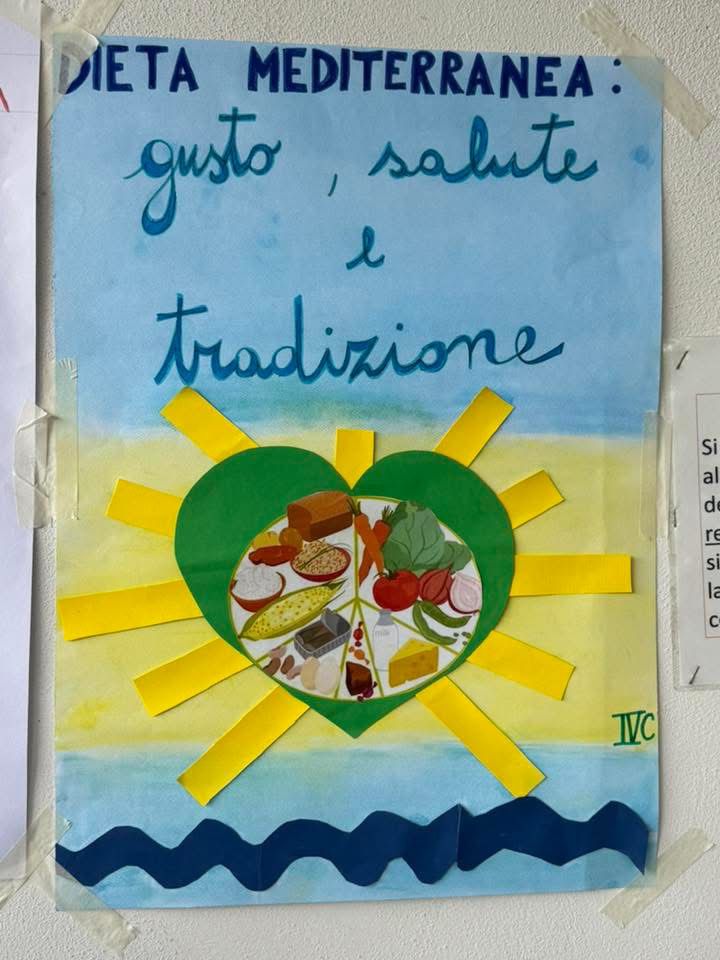 DIETA MEDITERRANEA:
gusto, salute
e
tradizione
milk
IVC
Si
al
de
re
si
la
co